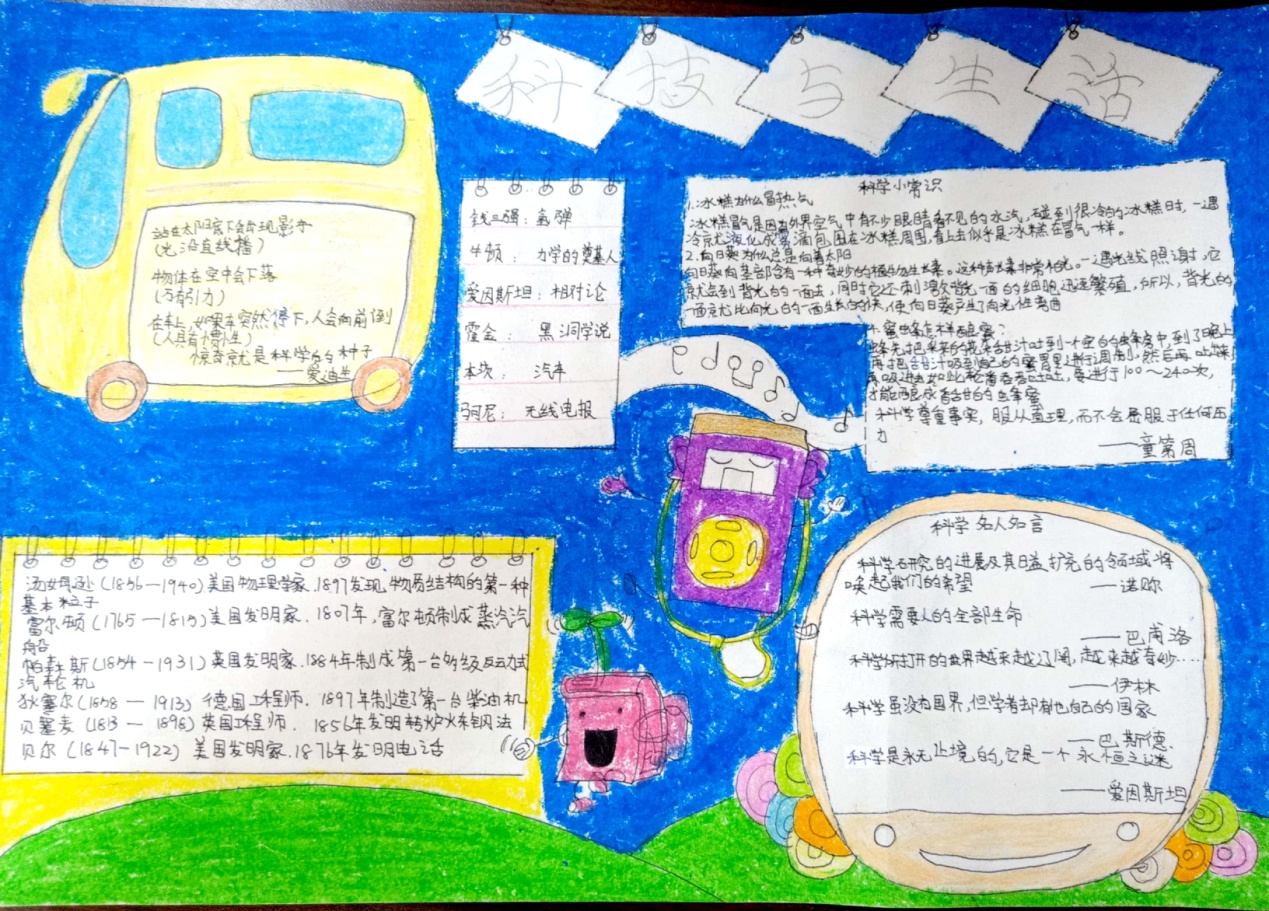 科技与生活
站在太阳底下会出现影子
(光沿直线播)
物体在空中会下落
(万有引力)
在车上,如果车突然停下,人会向前倒
(人具有惯性)
惊奇就是科学的种子
——爱迪生
钱三强:氢弹
牛顿:力学的奠基人
爱因斯坦:相对论
霍金:黑洞学说
本次:汽车
马可尼:无线电报
科学小常识
1.冰糕为什么冒热气
冰糕冒气是因为外界空气中有不少眼睛看不见的水汽,碰到很冷的冰糕时,一遇
冷就液化成雾滴包围在冰糕周围,看上去似乎是冰糕在冒气一样。
2.向日葵为什么总是向着太阳
向日葵向基部含有一种奇妙的植物生长素。这种生长素非常怕光。一遇光线照谢,它
就会到背光的一面去,同时它还刺激背光一面的细胞迅速繁殖,所以,背光的
一面就比向光的一面生长的快,使向日葵产生向光性弯曲
蜜蜂怎样酿蜜:
蜂先把采来的花朵甜汁吐到一个空的蜂房中,到了晚上
再把甜汁吸到自己的蜜胃里进行调制,然后再吐出来
再吸进去如此轮番吞吞吐吐,要进行100~240次,
才能酿成香甜的蜂蜜
科学尊重事实,服从真理,而不会屈服于任何压
力
——童第周
汤姆逊(1856—1940)美国物理学家.1897发现物质结构的第一种
基本粒子
富尔顿(1765—1815)美国发明家.1807年,富尔顿制成蒸汽汽
船
帕森斯(1854—1931)英国发明家.1884年制成第一台多级反动式
汽轮机
狄塞尔(1858—1913)德国工程师.1897年制造了第一台柴油机
贝塞麦(1813—1898)英国工程师.1856年发明转炉炼钢法
贝尔(1847—1922)美国发明家.1876年发明电话
科学名人名言
科学研究的进展及其日益扩充的领域将
唤起我们的希望
——诺贝尔
科学需要人的全部生命
——巴甫洛
科学所打开的世界越来越辽阔,越来越奇妙……
——伊林
科学虽没有国界,但学者却有他自己的国家
——巴斯德
科学是永无止境的,它是一个永恒之谜
——爱因斯坦